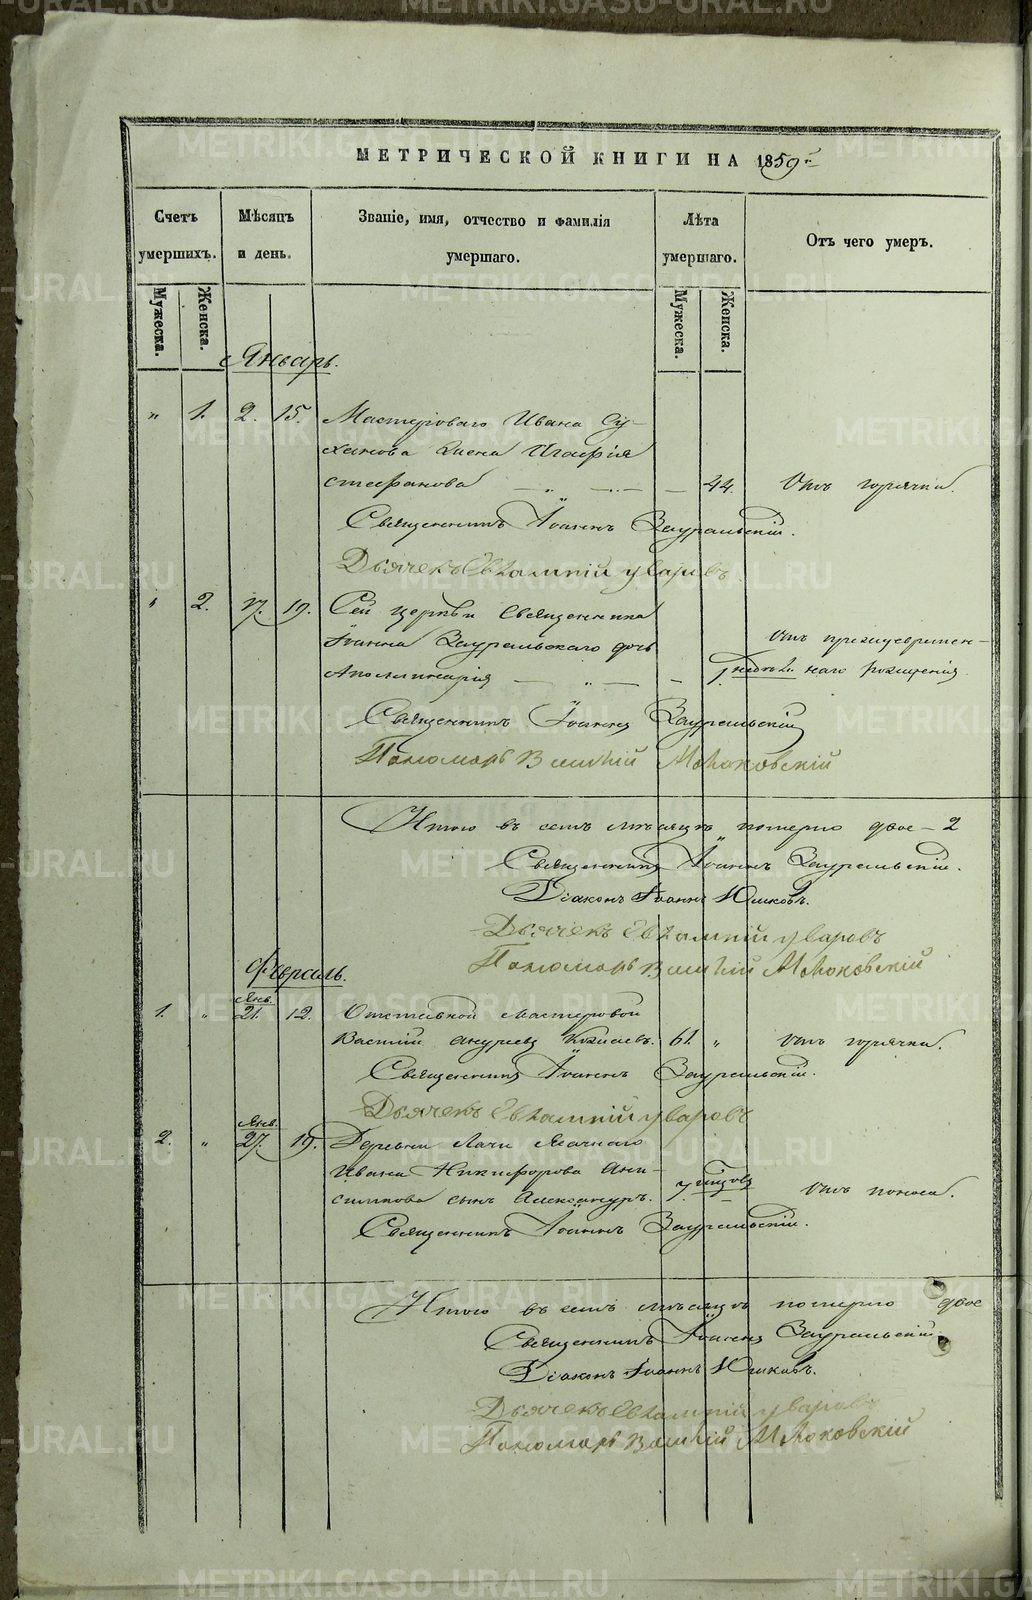 METRIKI.GASO-URAL.RU
МЕТРИЧЕСКОЙ КНИГИ НА 1859 г.
Счетъ умершихъ.
Мѣсяцъ и день.
Званіе, имя, отчество и фамилія умершаго.
Лѣта умершаго.
Отъ чего умеръ.
Мужеска.
Женска.
Мужеска.
Женска.
Январь.
" 1. 2. 15. Мастероваго Ивана Су-
ханова жена Агафія
Стефанова — " — 44. Отъ горячки.
Священникъ Іоаннъ Зауральскій.
Дьячекъ Евлампій Уваровъ
" 2. 17. 19. Сей церкви Священника
Іоанна Зауральскаго дочь Отъ преждевремен-
Аполлинарія — " — недѣли наго рожденія.
Священникъ Іоаннъ Зауральскій
Пономарь Василій
Итого въ семъ мѣсяцѣ померло двое — 2
Священникъ Іоаннъ Зауральскій.
Діаконъ Іоаннъ Юшковъ.
Дьячекъ Евлампій Уваровъ
Пономарь Василій
Февраль.
Янв.
1. " 21. 12. Отставной мастеровой
Василій 61. " Отъ горячки.
Священникъ Іоаннъ Зауральскій.
Дьячекъ Евлампій Уваровъ
Янв.
2. " 27. 19. Деревни
Ивана Никифорова Ани-
симова сынъ Александръ. 7. Отъ поноса.
Священникъ Іоаннъ Зауральскій.
Итого въ семъ мѣсяцѣ померло двое
Священникъ Іоаннъ Зауральскій
Діаконъ Іоаннъ Юшковъ.
Дьячекъ Евлампій Уваровъ
Пономарь Василій